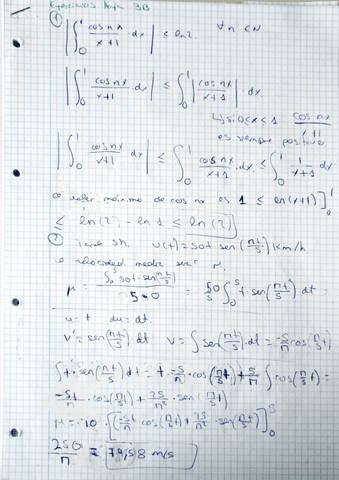 Ejercicios Hoja 3B
① | ∫₀¹ cos nx / x+1 · dx | ≤ ln 2. ∀n ∈ N
| ∫₀¹ cos nx / x+1 · dx | ≤ ∫₀¹ | cos nx / x+1 | dx.
↳ si 0<x<1 cos nx / x+1
es siempre positivo
| ∫₀¹ cos nx / x+1 dx | ≤ ∫₀¹ cos nx / x+1 · dx. ≤ ∫₀¹ 1 / x+1 dx
valor máximo de cos nx es 1 ≤ ln(x+1) ]₀¹
≤ ln(2) - ln 1 ≤ ln(2)
5h. v(t) = 50t sen(πt/5) km/h
velocidad media será μ.
μ = ∫₀⁵ 50t · sen(πt/5) / 5-0 = 50/5 ∫₀⁵ t · sen(πt/5) dt.
u = t du = dt.
v' = sen(πt/5) dt v = ∫ sen(πt/5) · dt = -5/π cos(πt/5)
∫ t · sen(πt/5) dt = t · -5/π · cos(πt/5) + 5/π ∫ cos(πt/5) =
-5t/π · cos(πt/5) + 25/π² · sen(πt/5)
μ = 10 · [ (-5t/π cos(πt/5) + 25/π² · sen(πt/5) ]₀⁵
250/π = 79,58 m/s